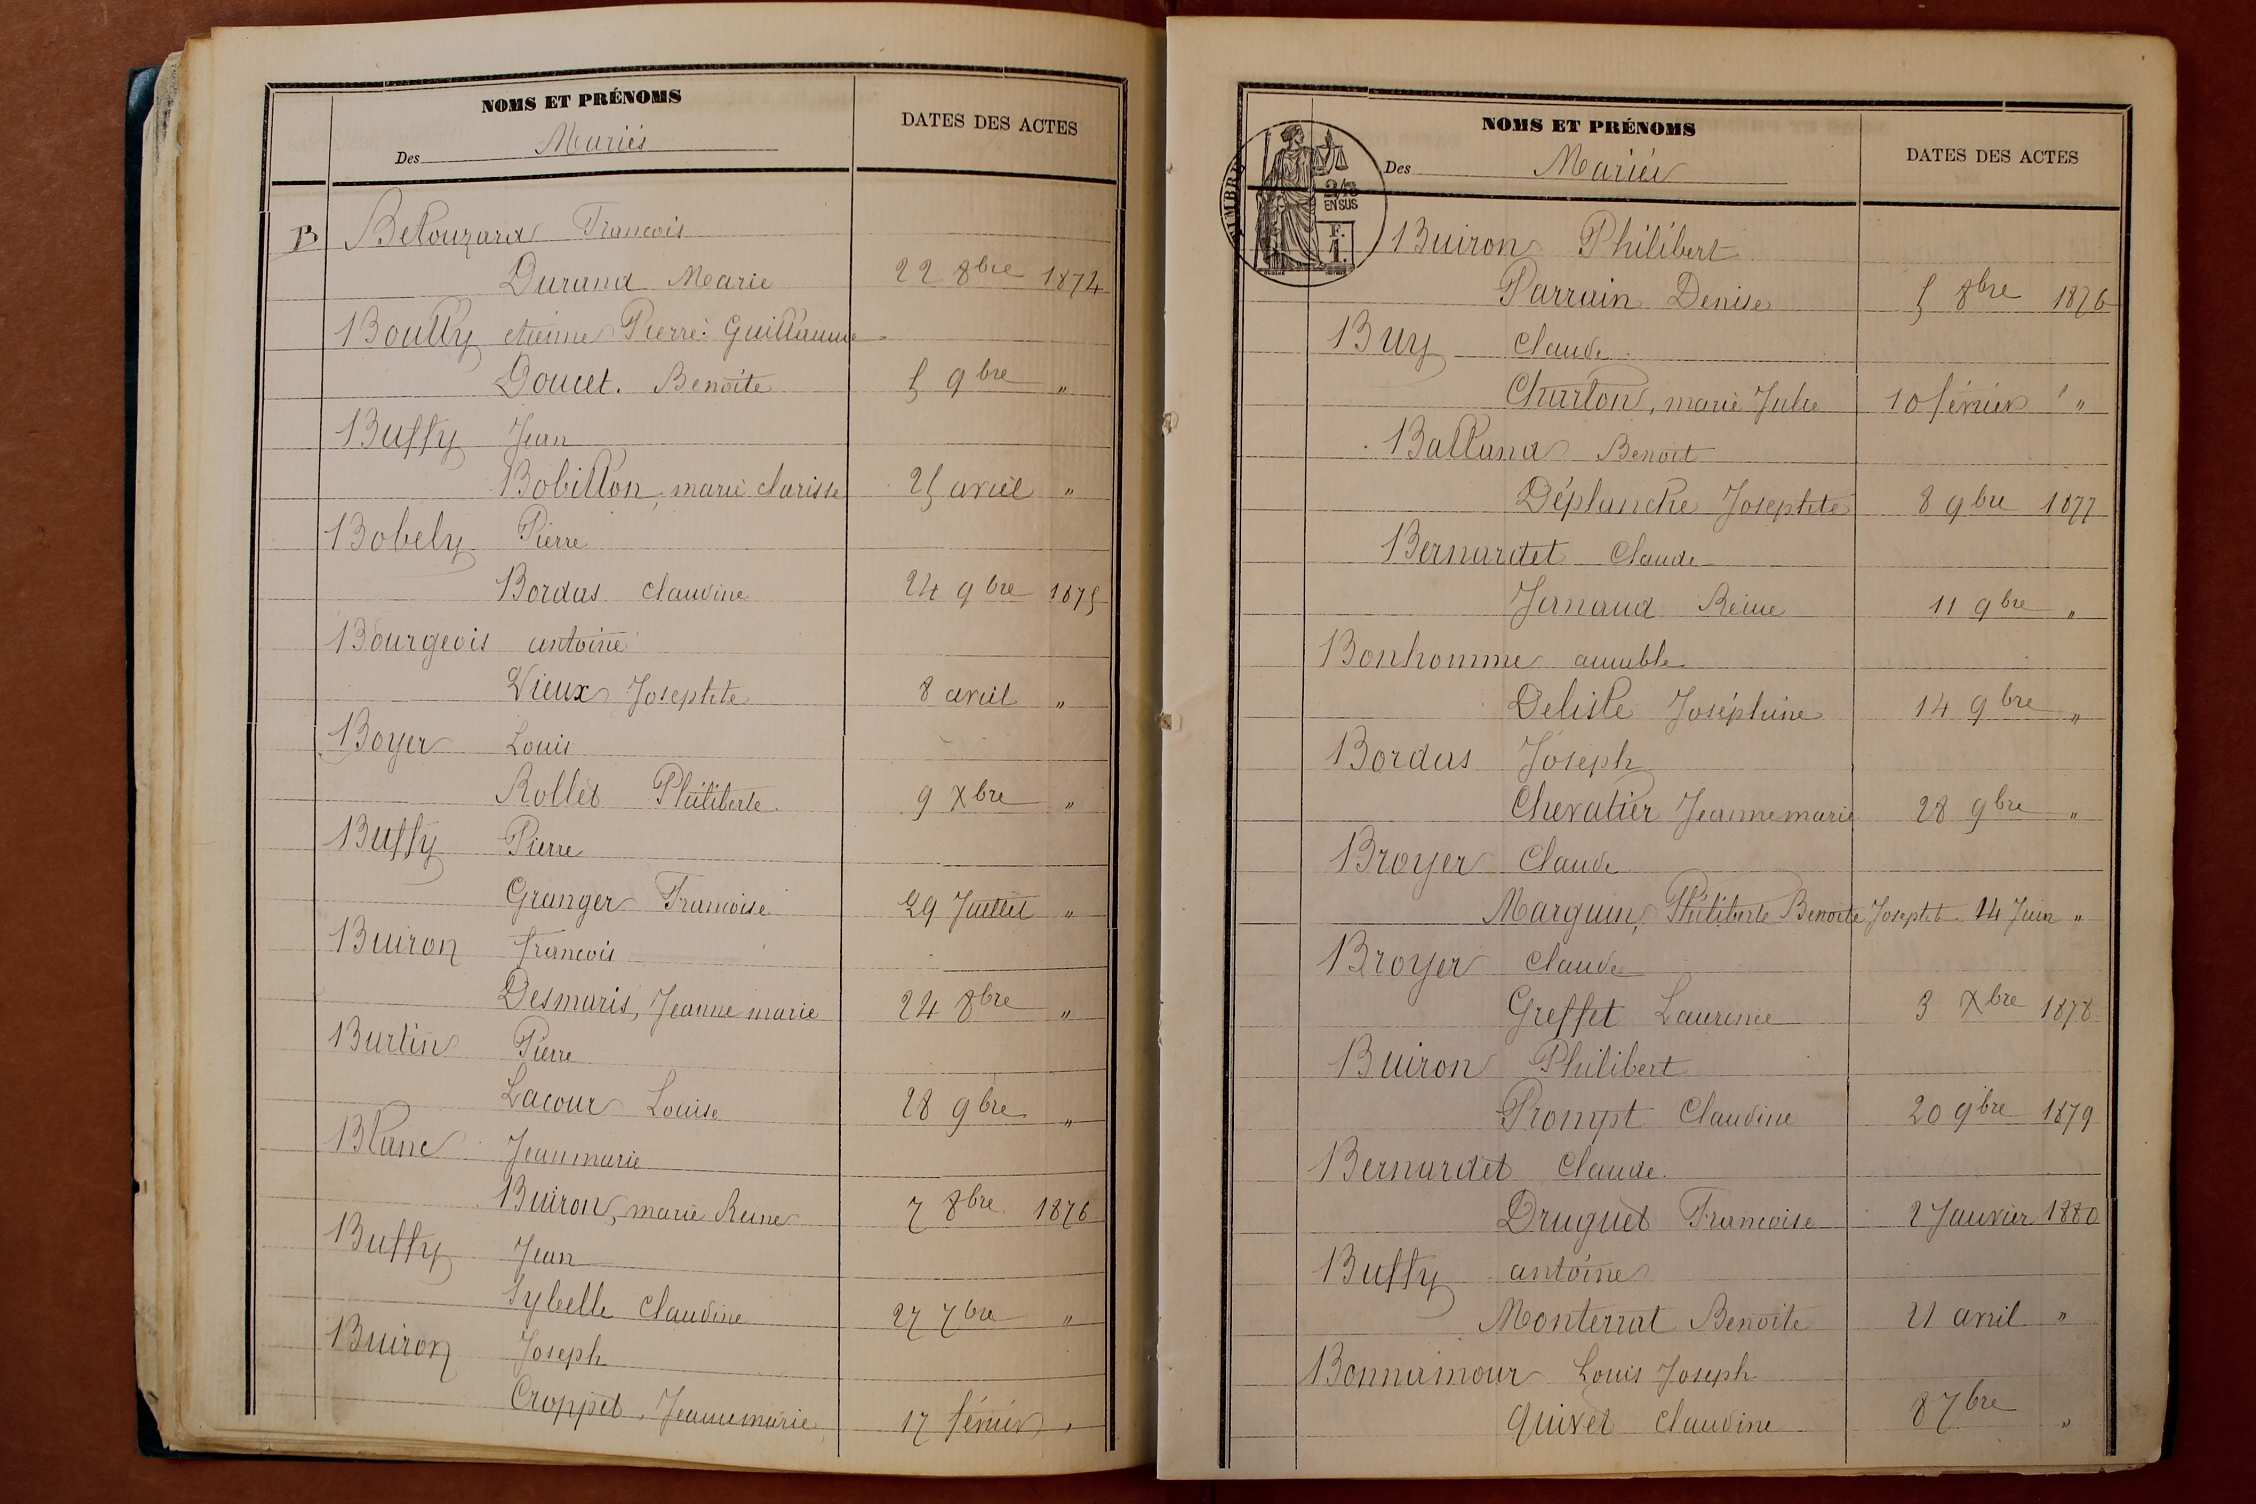 NOMS ET PRÉNOMS
Des Mariés
DATES DES ACTES
B Belouzard Francois
Durand Marie 22 8bre 1874
Boully etienne Pierre Guillaume
Doucet. Benoite 5 9bre "
Buffy Jean
Bobillon, marie clarisse 25 avril "
Bobely Pierre
Bordas claudine 24 9bre 1875
Bourgeois antoine
Vieux Josephte 8 avril "
Boyer Louis
Rollet Philiberte 9 Xbre "
Buffy Pierre
Granger Francoise 29 Juillet "
Buiron francois
Desmaris, Jeanne marie 24 8bre "
Burtin Pierre
Lacour Louise 28 9bre "
Blanc Jeanmarie
Buiron, marie Reine 7 8bre 1876
Buffy Jean
Sybelle Claudine 27 7bre "
Buiron Joseph
Croppet, Jeannemarie 17 février "
NOMS ET PRÉNOMS
Des Mariés
DATES DES ACTES
TIMBRE
2/10
EN SUS
F.
1.
Buiron Philibert
Parrain Denise 5 8bre 1876
Buy Claude
Charlon, marie Julie 10 février "
Balland Benoit
Déplanche Josephte 8 9bre 1877
Bernardet Claude
Janaud Reine 11 9bre "
Bonhomme amable
Delisle Joséphine 14 9bre "
Bordas Joseph
Chevalier Jeannemarie 28 9bre "
Broyer Claude
Marguin, Philiberte Benoite Josephte 14 Juin "
Broyer Claude
Greffet Laurence 3 Xbre 1878
Buiron Philibert
Prompt Claudine 20 9bre 1879
Bernardet Claude
Druguet Francoise 2 Janvier 1880
Buffy antoine
Monterrat Benoite 21 avril "
Bonnamour Louis Joseph
Quivet Claudine 8 7bre "